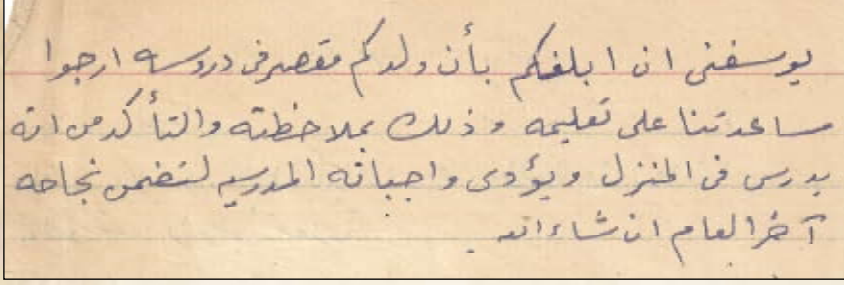 يوسفنى ان ابلغكم بأن ولدكم مقصر فى دروسه ارجوا
مساعدتنا على تعليمه وذلك بملاحظته والتأكد من انه
يدرس فى المنزل ويؤدى واجباته المدرسيه لنضمن نجاحه
آخر العام ان شاء الله